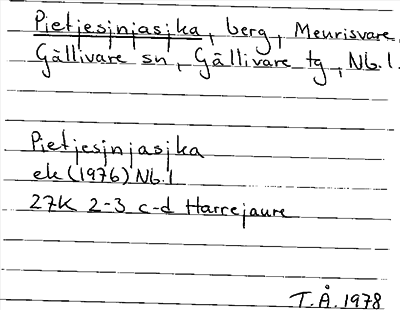 Pietjesjnjasjka, berg, Meurisvare,
Gällivare sn, Gällivare tg, Nb.l.
Pietjesjnjasjka
ek (1976) Nb.l
27K 2-3 c-d Harrejaure
T.Å. 1978